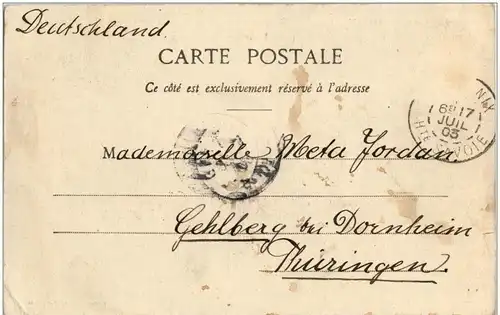 Deutschland.
CARTE POSTALE
Ce côté est exclusivement réservé à l'adresse
6E 17
JUIL
03
HTE SAVOIE
Mademoiselle Meta Jordan
Gehlberg bei Dornheim
Thüringen.